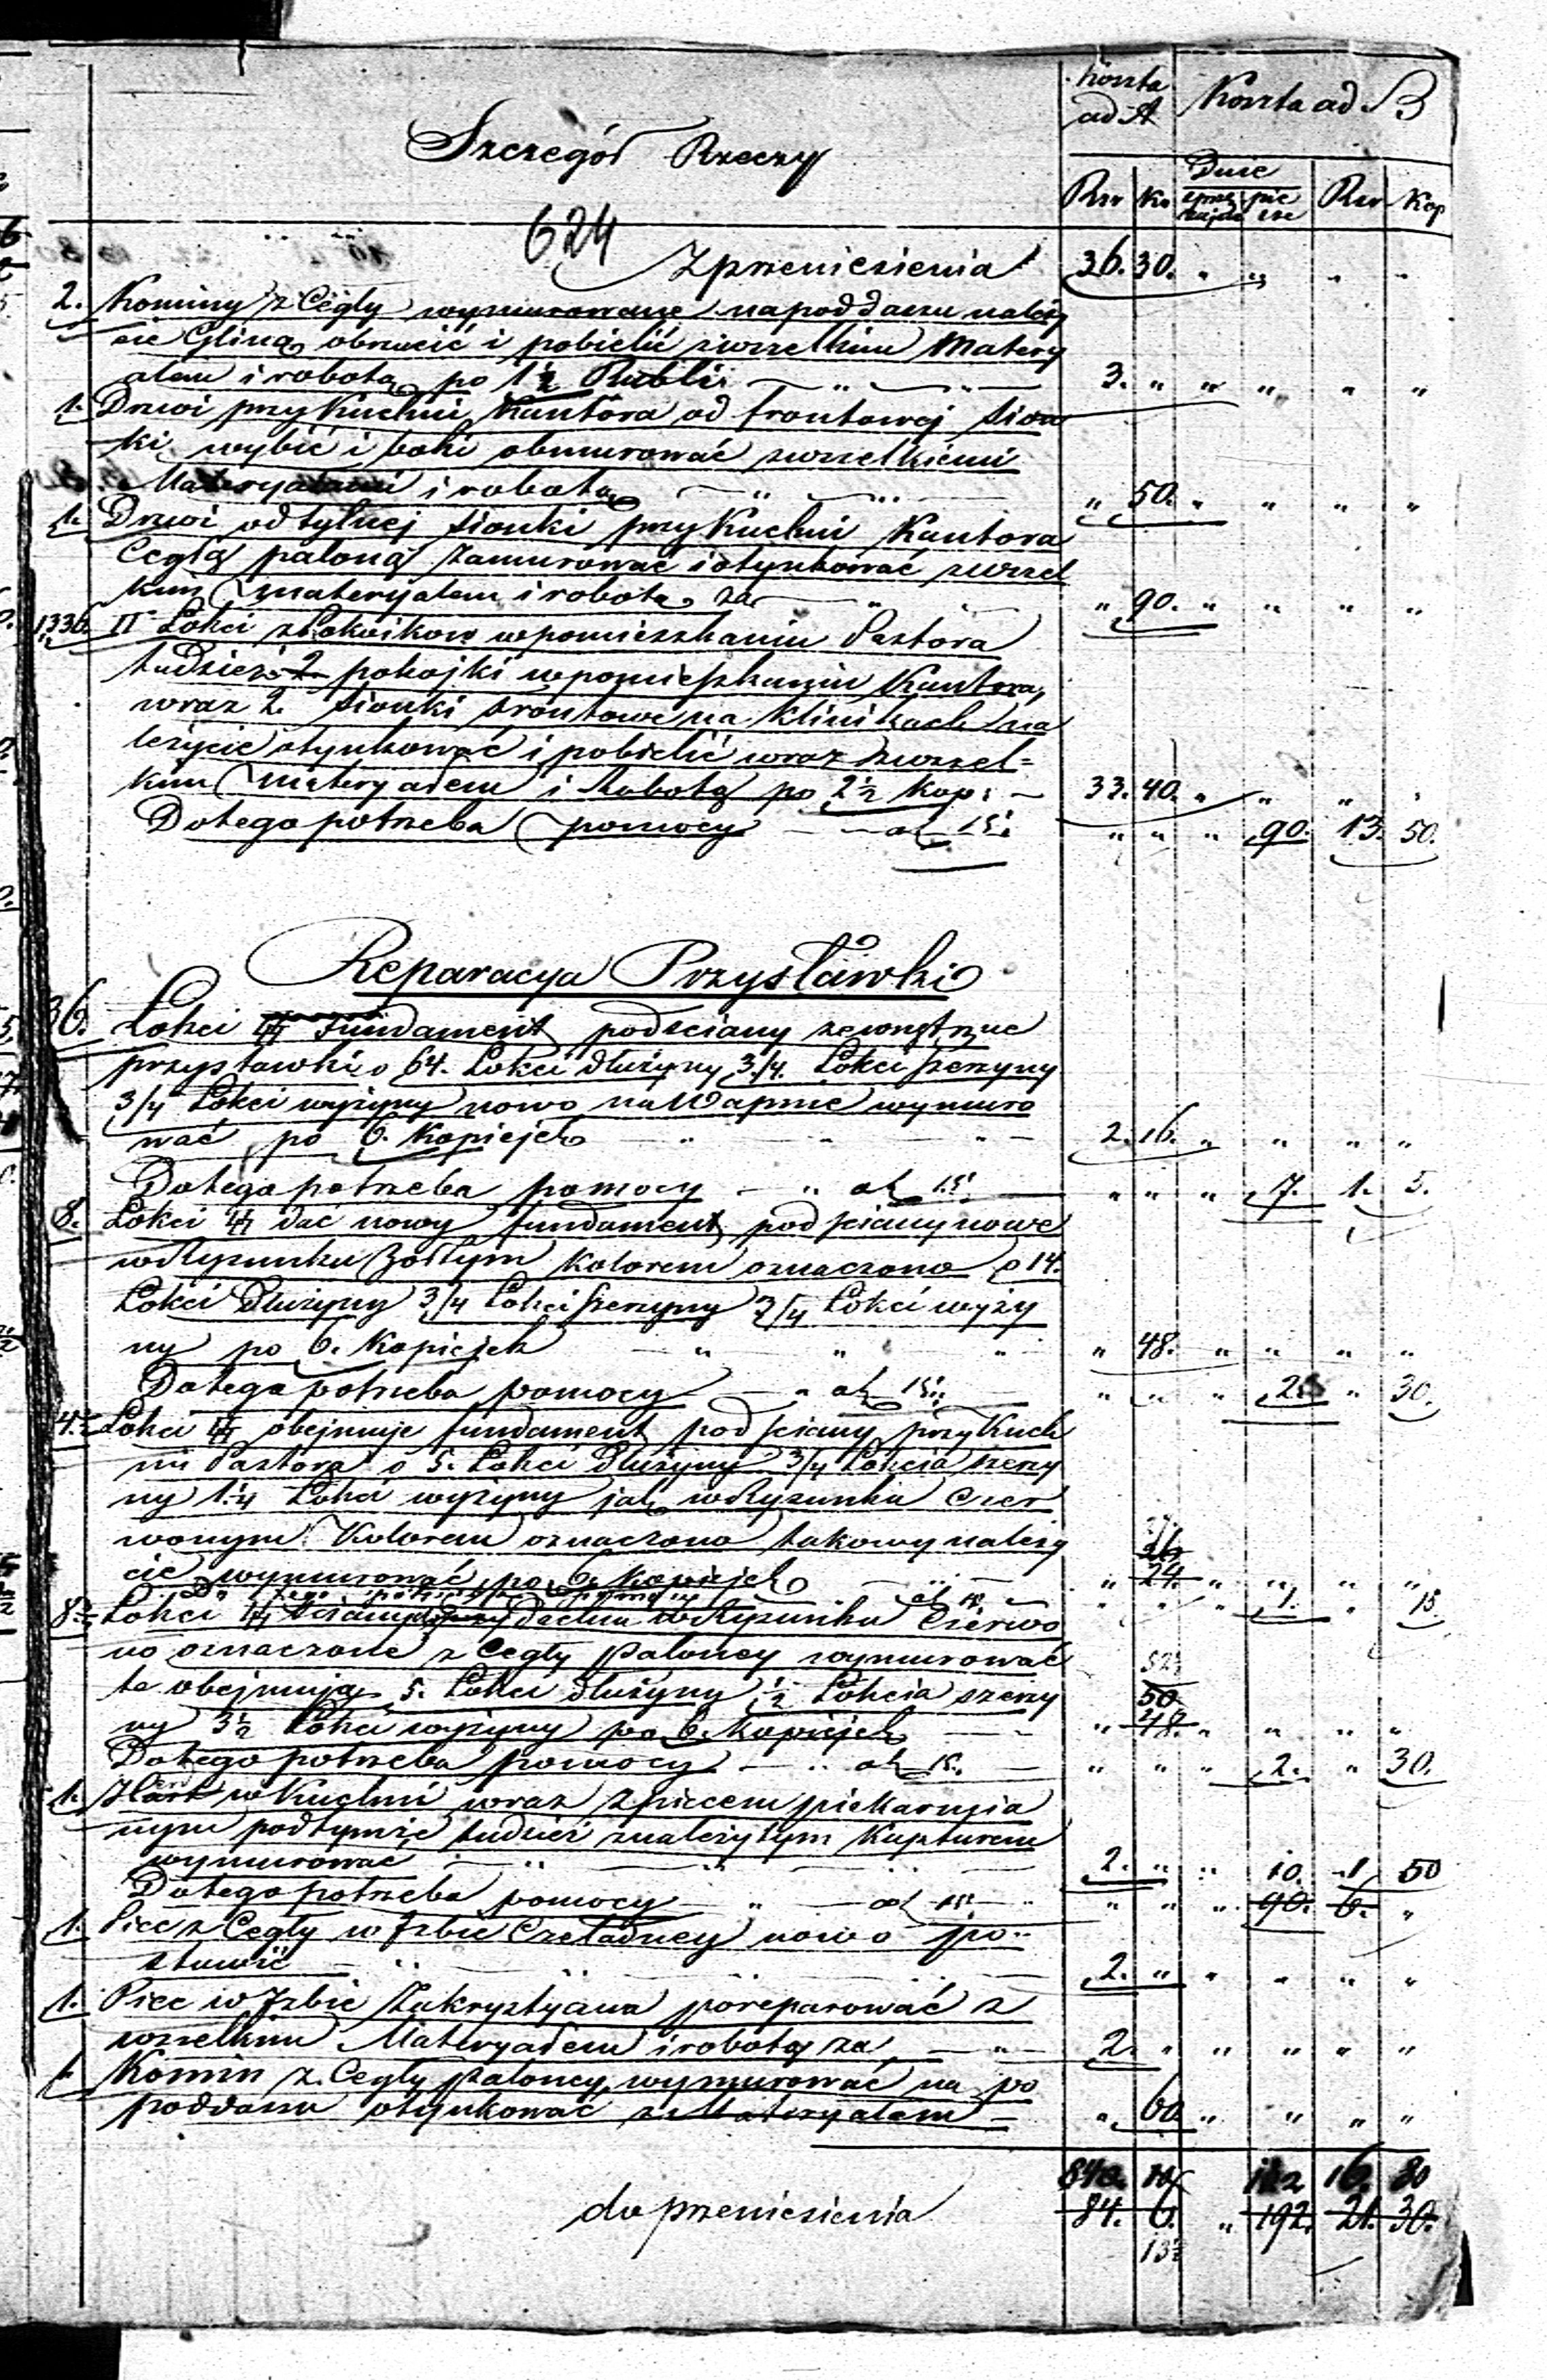 Koszta ad A Koszta ad B
Szczegół Rzeczy
Dnie
Rsr Ko sprzężajne piesze Rsr Kop
624
Z przeniesienia 36. 30. " " " "
2. Kominy z Cegły wymurowane na poddaszu należy
cie Gliną obrzucić i pobielić zwszelkim Matery
ałem i robotą po 1 1/2 Rubli 3. " " " " "
1. Drzwi przy Kuchni Kantora od frontowej sion
ki wybić i boki obmurować zwszelkiemi
Materyałami i robotą " 50. " " " "
1. Drzwi od tylnej sionki przy Kuchni Kantora
Cegłą paloną zamurować i otynkować zwszel
kim materyałem i robotą za " 90. " " " "
1336. □ Łokci z Pokoików w pomieszkaniu Pastora
tudzież 2 pokojki w pomieszkaniu Kantora,
wraz 2. sionki frontowe na klinikach na
leżycie otynkować i pobielić wraz zwszel=
kim materyałem i Robotą po 2 1/2 Kop: 33. 40. " " " "
Do tego potrzeba pomocy — a 15. " " " 90. 13. 50.
Reparacya Przystawki
36. Łokci fundament pod ściany zewnętrzne
przystawki o 64. Łokci dłużyny 3/4. Łokci szerzyny
3/4 Łokci wyżyny nowo na Wapnie wymuro
wać po 6. Kopiejek 2. 16. " " " "
Do tego potrzeba pomocy — " a 15. " " " 7. 1. 5.
8. Łokci dać nowy fundament pod ściany nowe
w Rysunku Żółtym Kolorem oznaczono o 14.
Łokci Dłużyny 3/4 Łokci szerzyny 3/4 Łokci wyży
ny po 6. Kopiejek " 48. " " " "
Do tego potrzeba pomocy — " a 15. " " " 2. " 30.
4. Łokci obejmuje fundament pod ściany przy Kuch
ni Pastora o 5. Łokci Dłużyny 3/4 Łokcia szerzy
ny 1 1/4 Łokci wyżyny jak w Rysunku Czer
wonym Kolorem oznaczono takowy należy
cie wymurować po 6. Kopiejek " 24. " " " "
Do tego potrzeba pomocy " " " 1. " 15
8. Łokci ściany w Rysunku Czerwo
no oznaczone z Cegły Paloney wymurować
te obejmują 5. Łokci dłużyny 1/2 Łokcia szerzy
ny 3 1/2 Łokci wyżyny po 6. Kopiejek " 48. " " " "
Do tego potrzeba pomocy — " a 15. " " " 2. " 30.
1. w Kuchni wraz z piecem piekarnia
nym podtymże tudzież należytym Kapturem
wymurować 2. " " 10. 1 50
Do tego potrzeba pomocy — " — a 15. " " " 90. 6. "
1. Piec z Cegły w Izbie Czeladney nowo po=
stawić 2. " " " " "
1. Piec w Izbie Zakrystyana poreparować z
wszelkim Materyałem i robotą za 2. " " " " "
1. Komin z Cegły paloney wymurować na po
poddasu otynkować z Materyałem " 60 " " " "
102 16. 80
do przeniesienia 84. 6. " 192. 21. 30.